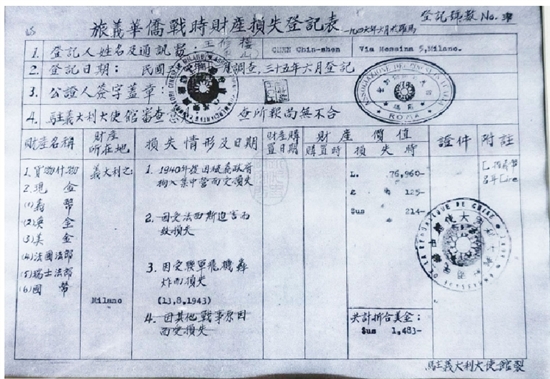 旅義華僑戰時財産損失登記表
登記號數 No.
一九四六年六月於羅馬
1. 登記人姓名及通訊處: CHEN Chin-shen Via Messina 5, Milano.
2. 登記日期: 民國 月調查,三十五年六月登記
3. 公證人簽字蓋章:
4. 駐義大利大使館審查: 查所報尚無不合
財產名稱 財産所在地 損失情形及日期 財産購買日期 財産價值 購買時 損失時 證件 附註
1. 貨物什物 義大利
2. 現金
(1) 義幣
(2) 英金
(3) 美金
(4) 法國法郎
(5) 瑞士法郎
(6) 國幣
Milano
1. 1940年被
拘入集中營而受損失
2. 因受法西斯迫害而
致損失
3. 因受聯軍飛機轟
炸而損失
(13.8.1943)
4. 因其他戰事原因
而受損失
L. 76,960-
£ 125-
$us 214-
共計折合美金:
$us 1,483-
駐義大利大使館製